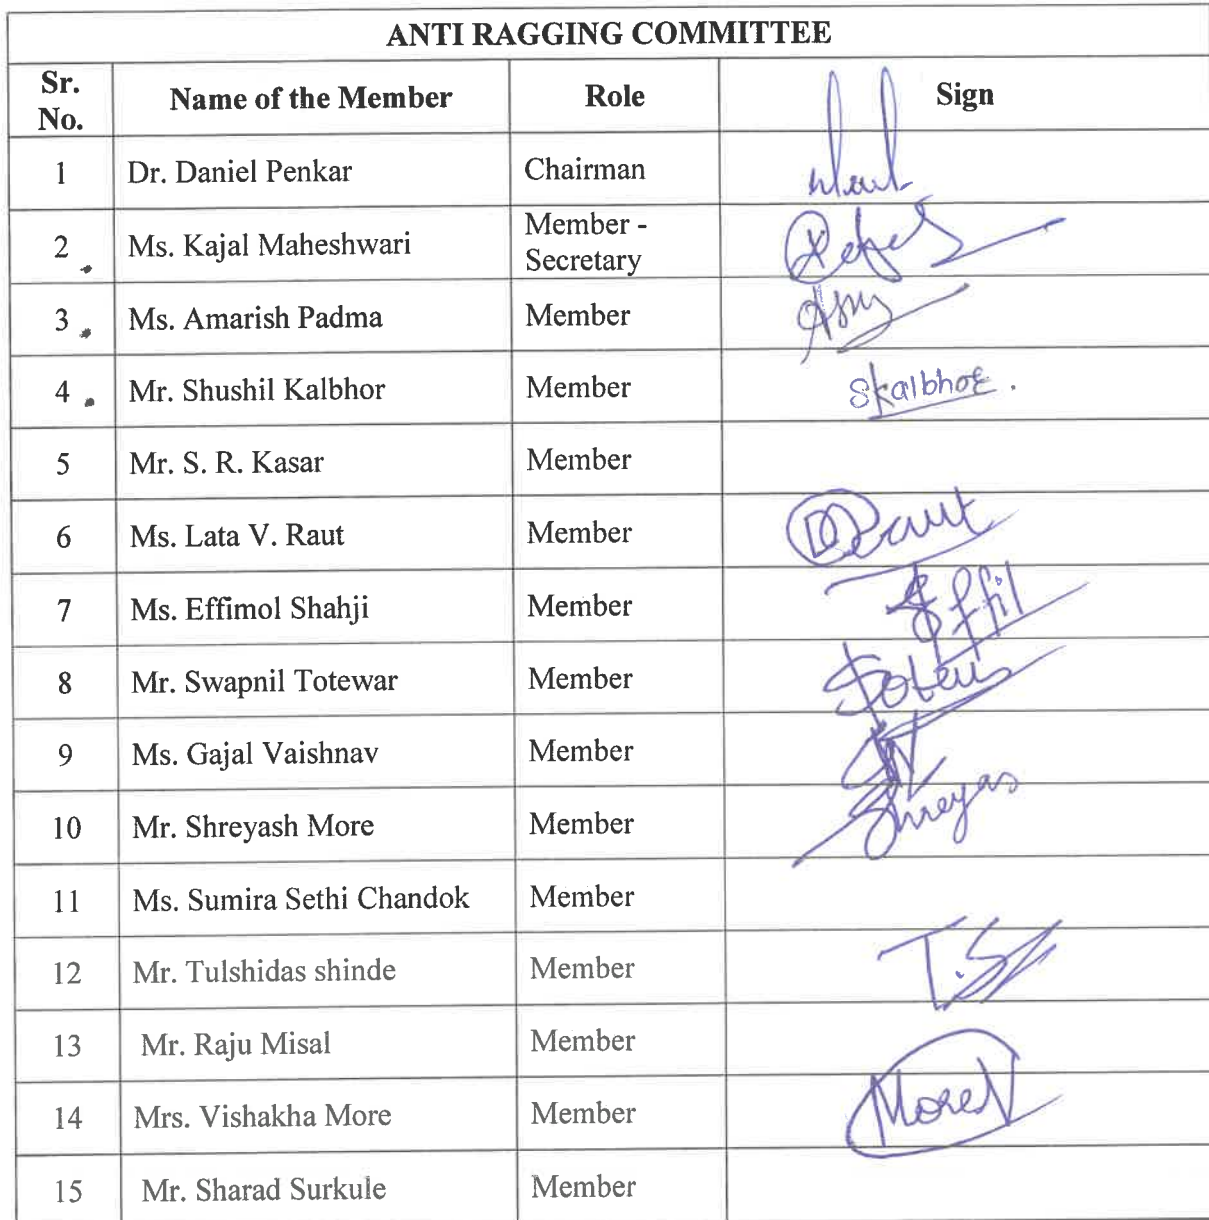 ANTI RAGGING COMMITTEE
Sr. No. Name of the Member Role Sign
1 Dr. Daniel Penkar Chairman
2 Ms. Kajal Maheshwari Member - Secretary
3 Ms. Amarish Padma Member
4 Mr. Shushil Kalbhor Member Skalbhor.
5 Mr. S. R. Kasar Member
6 Ms. Lata V. Raut Member Raut
7 Ms. Effimol Shahji Member
8 Mr. Swapnil Totewar Member
9 Ms. Gajal Vaishnav Member
10 Mr. Shreyash More Member Shreyas
11 Ms. Sumira Sethi Chandok Member
12 Mr. Tulshidas shinde Member
13 Mr. Raju Misal Member
14 Mrs. Vishakha More Member More
15 Mr. Sharad Surkule Member